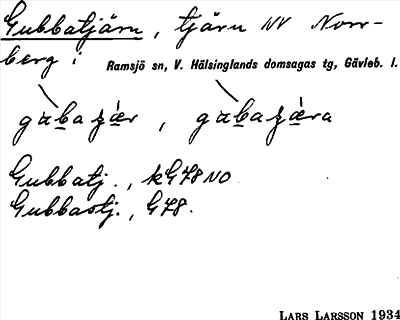 Gubbatjärn, tjärn NV Norr-
berg i Ramsjö sn, V. Hälsinglands domsagas tg, Gävleb. l.
Gubbatj., kG78NO
Gubbastj., G78.
LARS LARSSON 1934